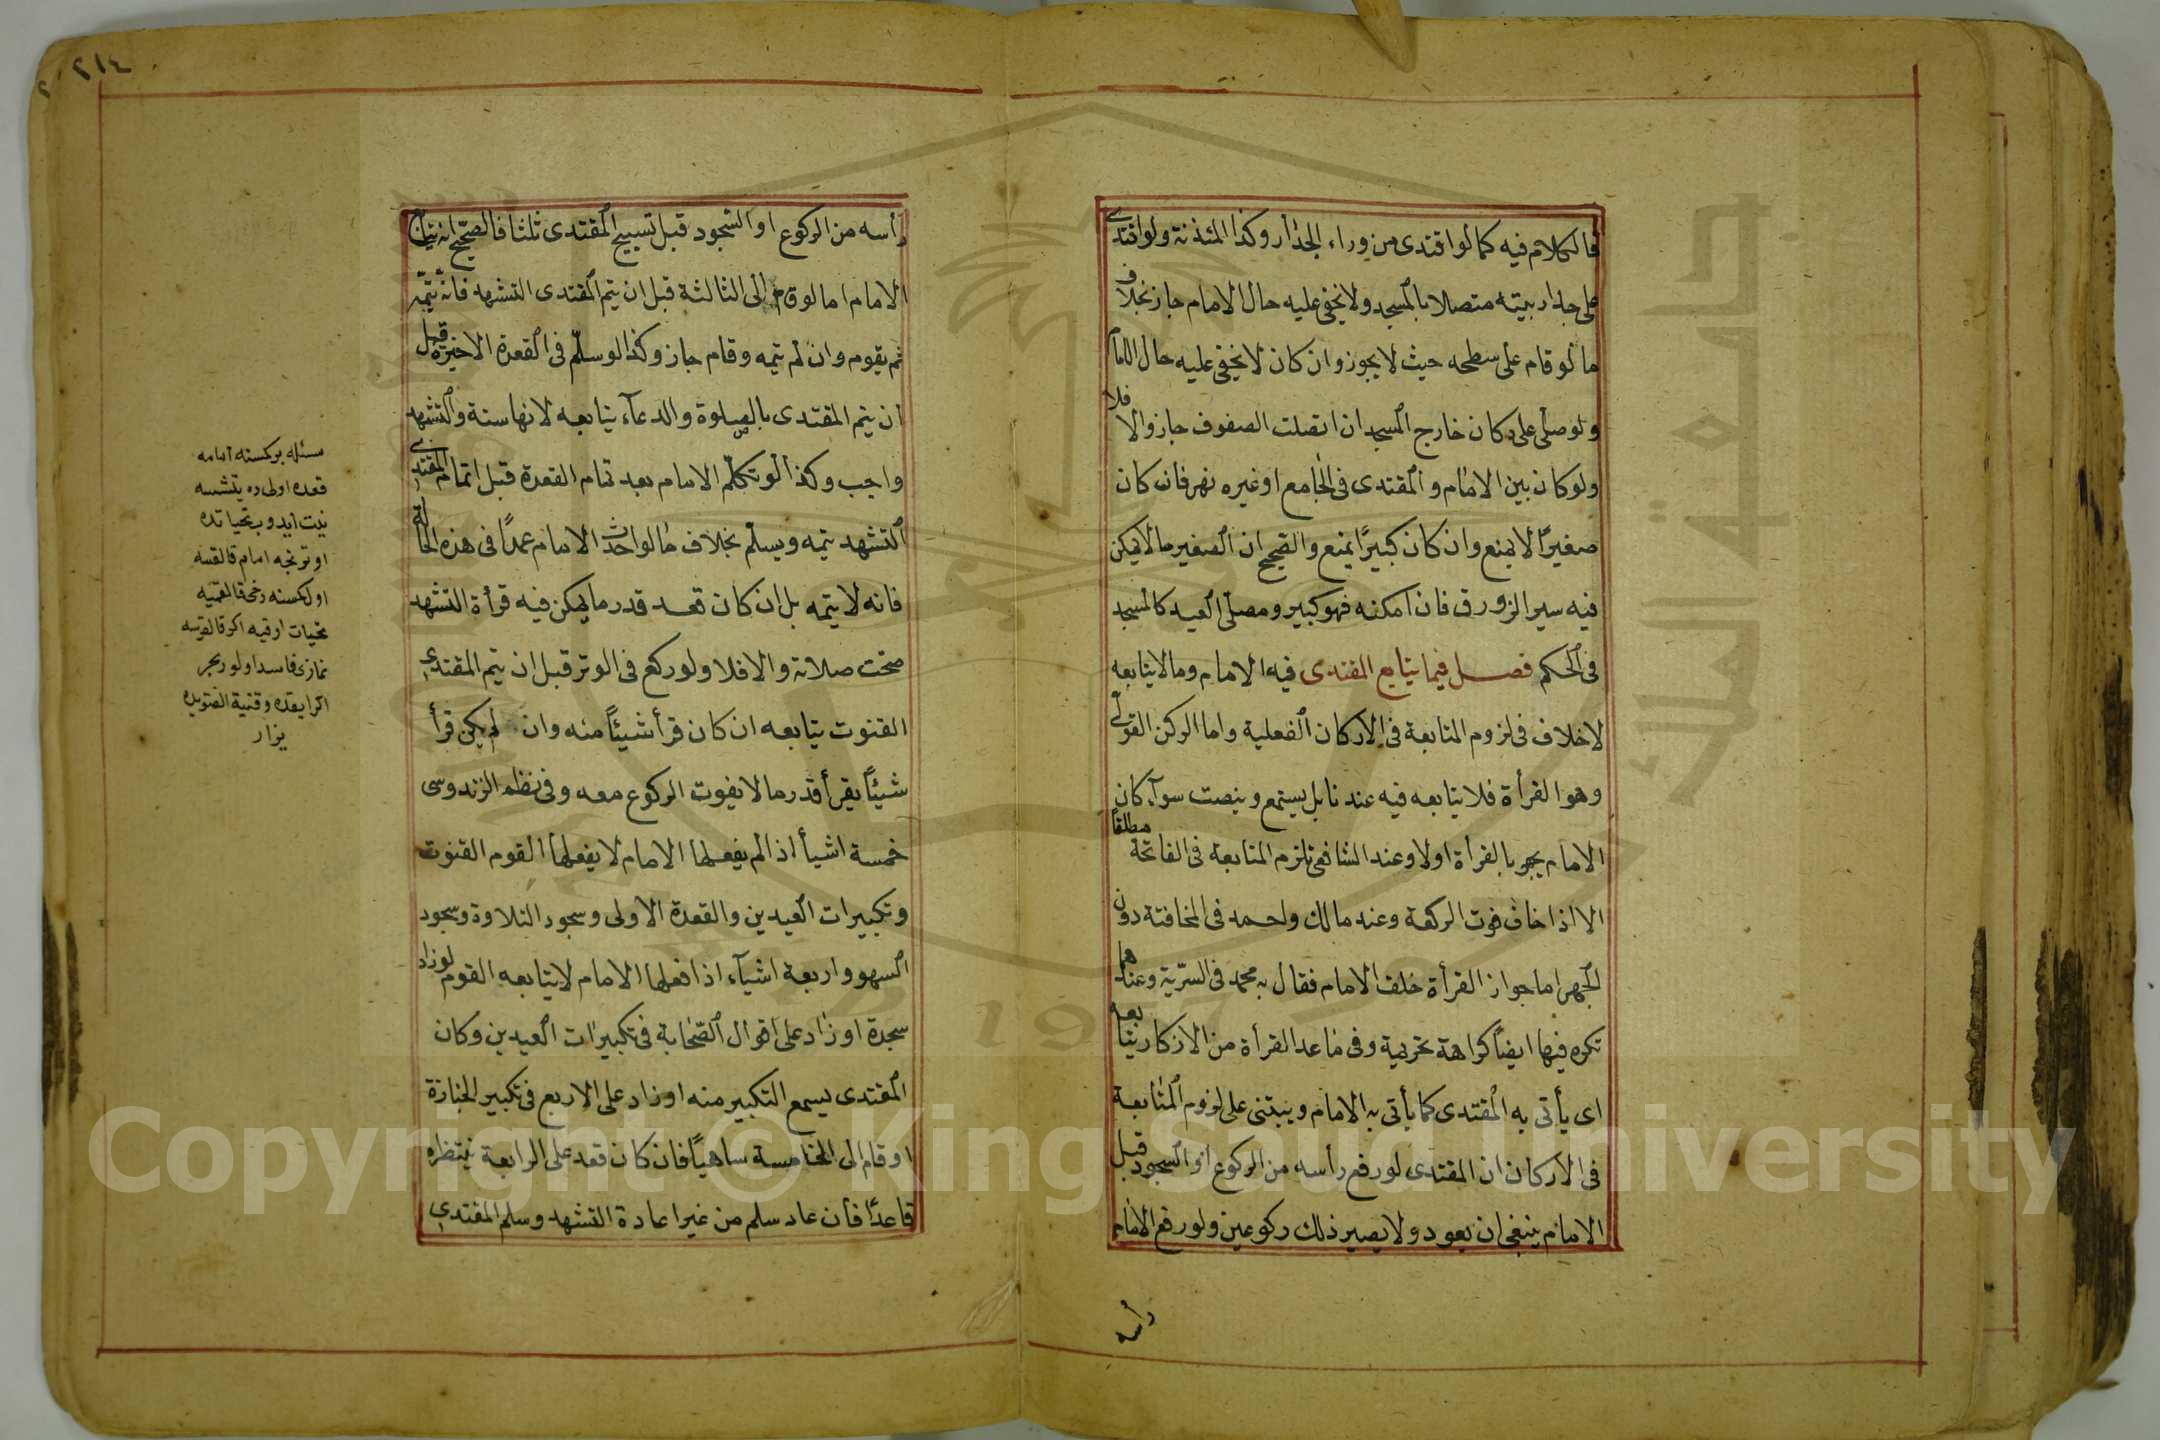 فالكلام فيه كما لو اقتدى من وراء الجدار وكذا المئذنة ولو اقتدى
على جدار بيته متصلا بالمسجد ولا يخفى عليه حال الامام جاز بخلاف
ما لو قام على سطحه حيث لا يجوز وان كان لا يخفى عليه حال الامام
ولو صلى على دكان خارج المسجد ان اتصلت الصفوف جاز والا فلا
ولو كان بين الامام والمقتدى فى الجامع او غيره نهر فان كان
صغيرًا لا يمنع وان كان كبيرًا يمنع والصحيح ان الصغير ما لا يمكن
فيه سير الزورق فان امكنه فهو كبير ومصلى العيد كالمسجد
فى الحكم فصل فيما يتابع المقتدى فيه الامام وما لا يتابعه
لا خلاف فى لزوم المتابعة فى الاركان الفعلية واما الركن القولى
وهو القرأة فلا يتابعه فيه عندنا بل يستمع وينصت سوآء كان
الامام يجهر بالقرأة اولا وعند الشافعى تلزم المتابعة فى الفاتحة مطلقًا
الا اذا خاف فوت الركعة وعند مالك واحمد فى المخافتة دون
الجهر اما جواز القرأة خلف الامام فقال به محمد فى السرّية وعندهما
تكره فيها ايضًا كراهة تحريمية وفى ما عدا القرأة من الاذكار يتابعه
اى يأتى به المقتدى كما يأتى به الامام ويبتنى على لزوم المتابعة
فى الاركان ان المقتدى لو رفع رأسه من الركوع او السجود قبل
الامام ينبغى ان يعود ولا يصير ذلك ركوعين ولو رفع الامام
رأسه
٢١٤
رأسه من الركوع او السجود قبل تسبيح المقتدى ثلثا فالصحيح انه يتابع
الامام اما لو قام الى الثالثة قبل ان يتم المقتدى التشهد فانه يتمّه
ثم يقوم وان لم يتمه وقام جاز وكذا لو سلّم فى القعدة الاخيرة قبل
ان يتم المقتدى بالصلوة والدعآء يتابعه لانها سنة والتشهد
واجب وكذا لو تكلّم الامام بعد تمام القعدة قبل اتمام المقتدى
التشهد يتمه ويسلّم بخلاف ما لو احدث الامام عمدًا فى هذه الحالة
فانه لا يتمه بل ان كان قعد قدر ما يمكن فيه قرأة التشهد
صحت صلاته والا فلا ولو ركع فى الوتر قبل ان يتم المقتدى
القنوت يتابعه ان كان قرأ شيئًا منه وان لم يكن قرأ
شيئًا يقرأ قدر ما لا يفوت الركوع معه وفى نظم الزندوسى
خمسة اشيأ اذا لم يفعلها الامام لا يفعلها القوم القنوت
وتكبيرات العيدين والقعدة الاولى وسجود التلاوة وسجود
السهو واربعة اشيآء اذا فعلها الامام لا يتابعه القوم لو زاد
سجدة او زاد على اقوال الصحابة فى تكبيرات العيدين وكان
المقتدى يسمع التكبير منه او زاد على الاربع فى تكبير الجنازة
او قام الى الخامسة ساهيًا فان كان قعد على الرابعة ينتظره
قاعدًا فأن عاد سلم من غير اعادة التشهد وسلم المقتدى
مسئله بركسنه امامه
قعده اولى ده يتشسه
نيت ايدوب تحياتده
اوترنجه امام قالقسه
اولكسنه دخى قالقميه
تحيات ارقيه اكر قالقرسه
نمازى فاسد اولور بحر
يزار
Copyright © King Saud University